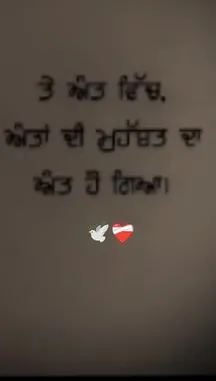 ਤੇ ਅੰਤ ਵਿੱਚ,
ਅੰਤਾਂ ਦੀ ਮੁਹੱਬਤ ਦਾ
ਅੰਤ ਹੋ ਗਿਆ।
🕊️❤️‍🩹